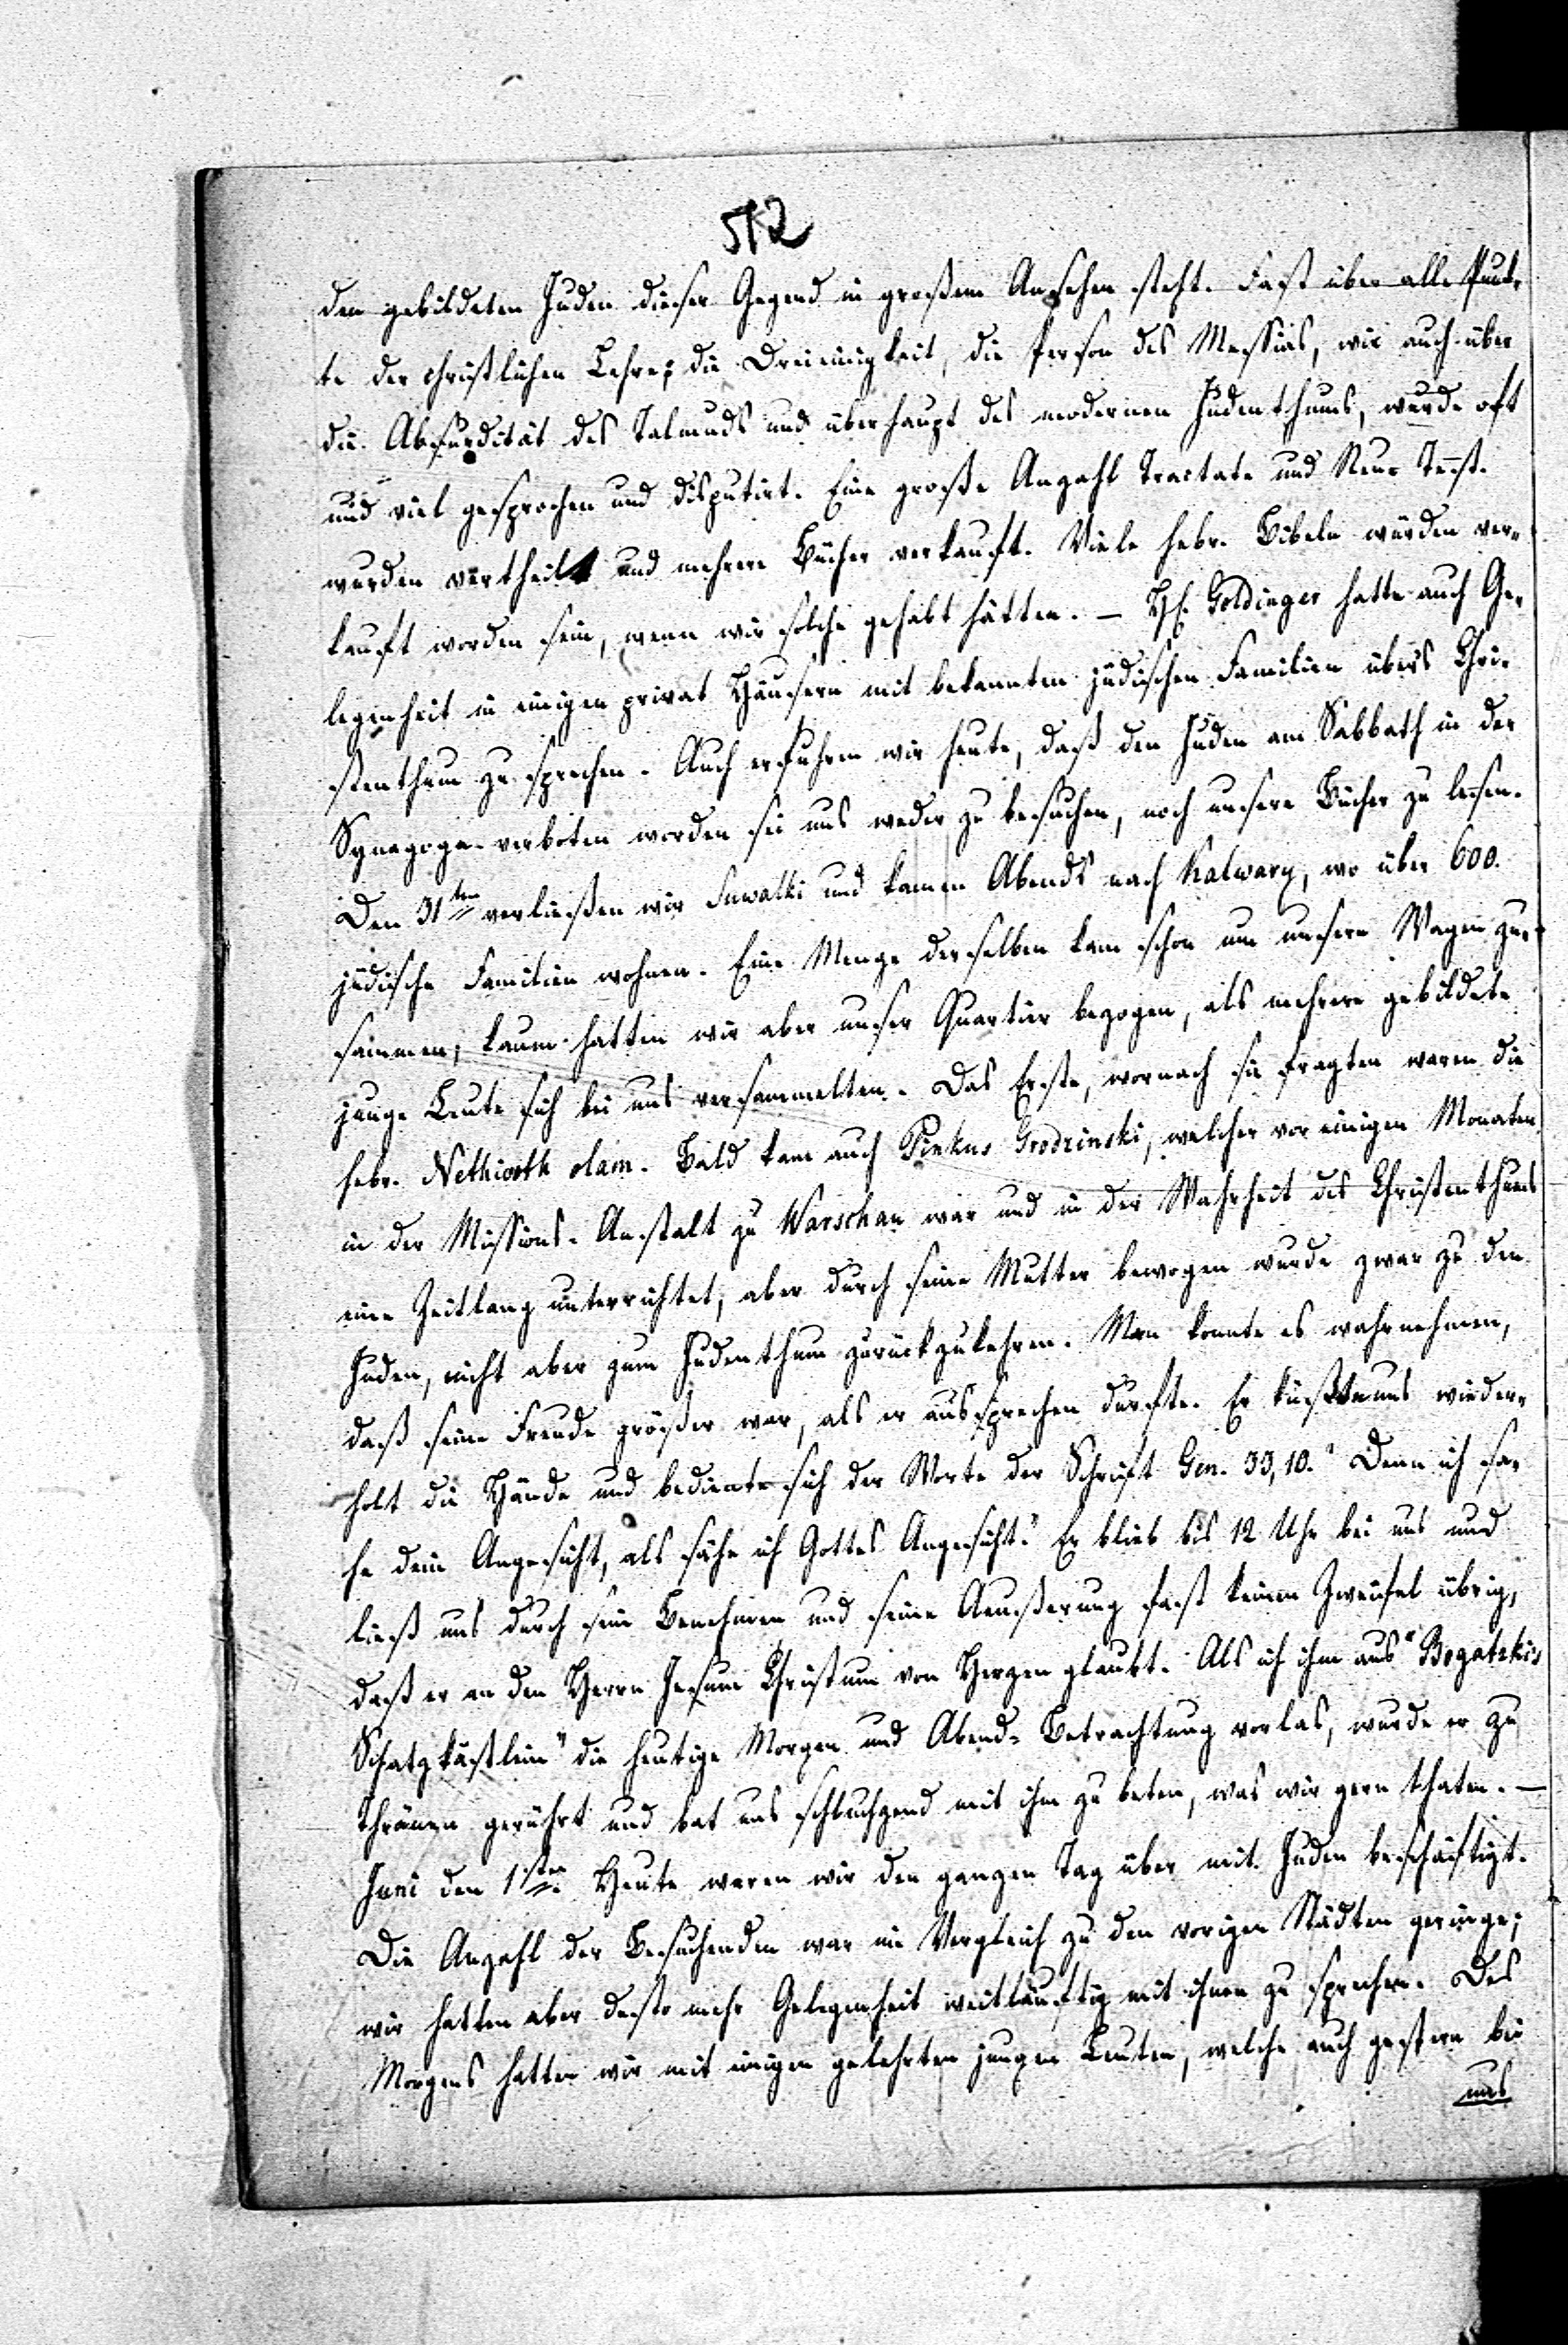 512
den gebildeten Juden dieser Gegend in großem Ansehen steht. Fast über alle Punk-
te der christlichen Lehre; die Dreieinigkeit, die Person des Messias, wie auch über
die Absurdität des Talmuds und überhaupt des modernen Judenthums, wurde oft
und viel gesprochen und disputirt. Eine große Anzahl Tractate und Neue Test.
wurden vertheilt und mehrere Bücher verkauft. Viele hebr. Bibeln würden ver-
kauft worden sein, wenn wir solche gehabt hätten. — H. Goldinger hatte auch Ge-
legenheit in einigen privat Häusern mit bekannten jüdischen Familien übers Chri-
stenthum zu sprechen. Auch erfuhren wir heute, daß den Juden am Sabbath in der
Synagoge verboten worden sei uns weder zu besuchen, noch unsere Bücher zu lesen.
Den 31ten verließen wir Suwalki und kamen Abends nach Kalwary, wo über 600.
jüdische Familien wohnen. Eine Menge derselben kam schon um unsern Wagen zu-
sammen; kaum hatten wir aber unser Quartier bezogen, als mehrere gebildete
junge Leute sich bei uns versammelten. Das Erste, wornach sie fragten waren die
hebr. Nethiwoth olam. Bald kam auch Pinkus Grodzinski, welcher vor einigen Monaten
in der Missions-Anstalt zu Warschau war und in der Wahrheit des Christenthums
eine Zeitlang unterrichtet, aber durch seine Mutter bewogen wurde zwar zu den
Juden, nicht aber zum Judenthum zurückzukehren. Man konnte es wahrnehmen,
daß seine Freude größer war, als er aussprechen durfte. Er küßte uns wieder-
holt die Hände und bediente sich der Worte der Schrift Gen. 33,10. "Denn ich sa-
he dein Angesicht, als sähe ich Gottes Angesicht." Er blieb bis 12 Uhr bei uns und
ließ uns durch sein Benehmen und seine Aeußerung fast keinen Zweifel übrig,
daß er an den Herrn Jesum Christum von Herzen glaubt. Als ich ihm aus "Bogatzkis
Schatzkästlein" die heutige Morgen und Abend-Betrachtung vorlas, wurde er zu
Thränen gerührt und bat uns schluchzend mit ihm zu beten, was wir gern thaten. —
Juni den 1sten Heute waren wir den ganzen Tag über mit Juden beschäftigt.
Die Anzahl der Besuchenden war im Vergleich zu den vorigen Städten geringe;
wir hatten aber desto mehr Gelegenheit weitläuftig mit ihnen zu sprechen. Des
Morgens hatten wir mit einigen gelehrten jungen Leuten, welche auch gestern bei
uns